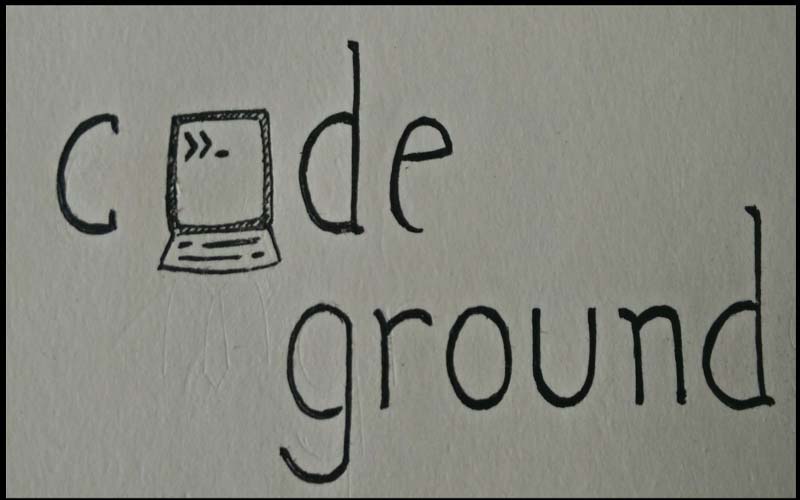 code
»_
ground